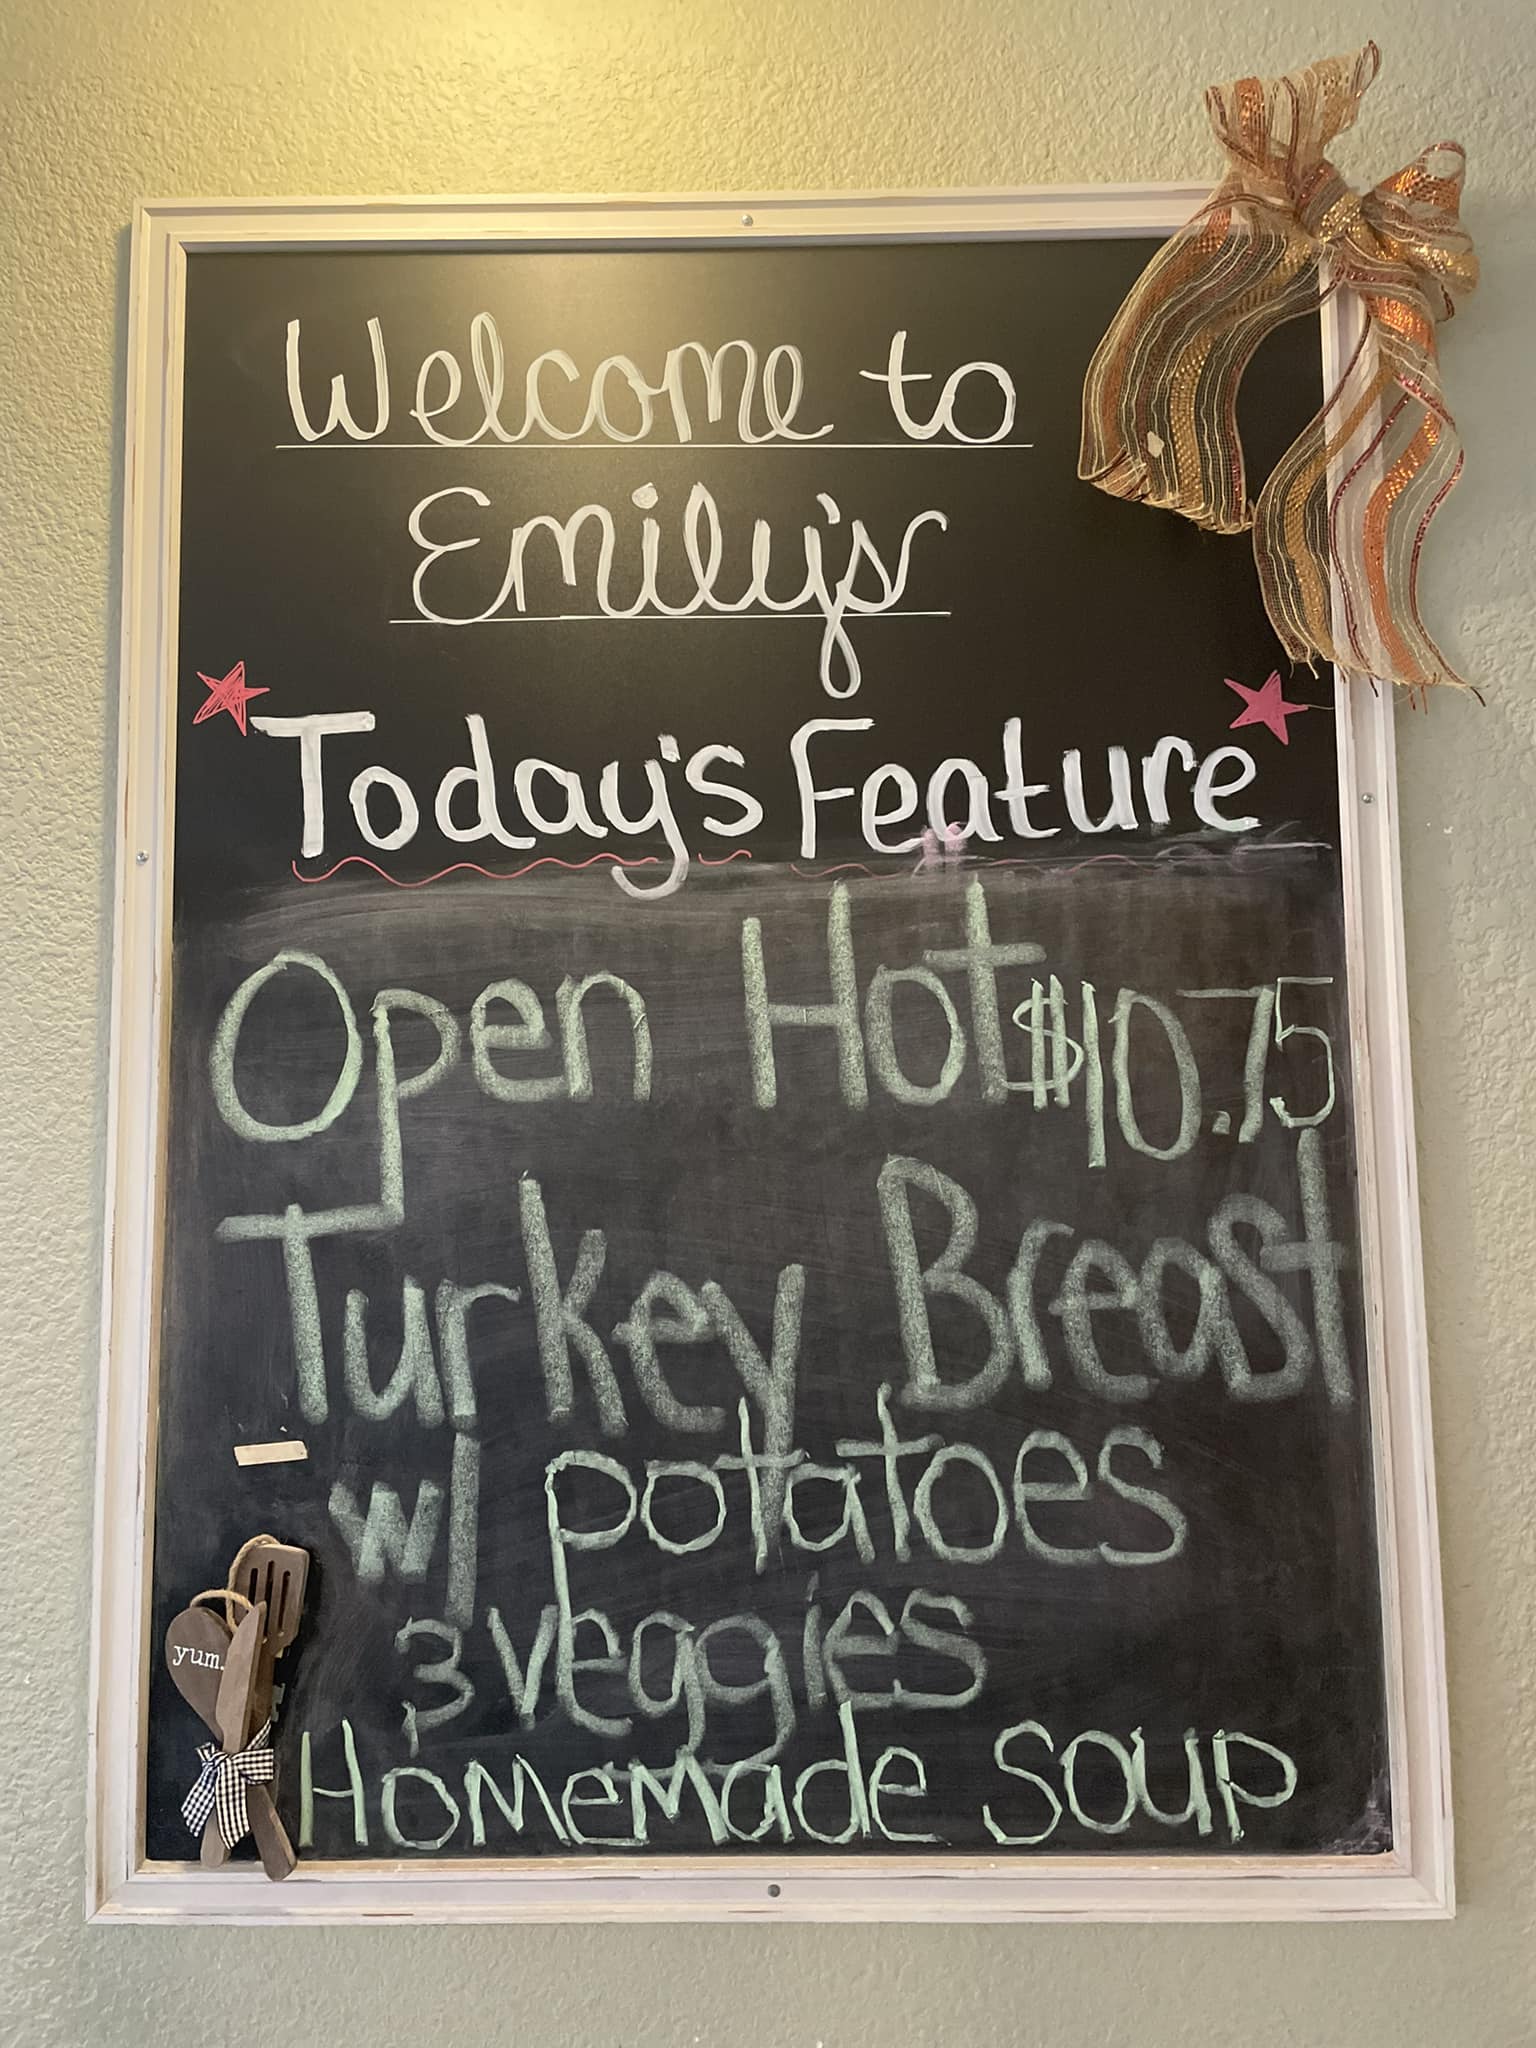 Welcome to
Emily's
Today's Feature
Open Hot $10.75
Turkey Breast
w/ potatoes
3 veggies
Homemade Soup
yum.